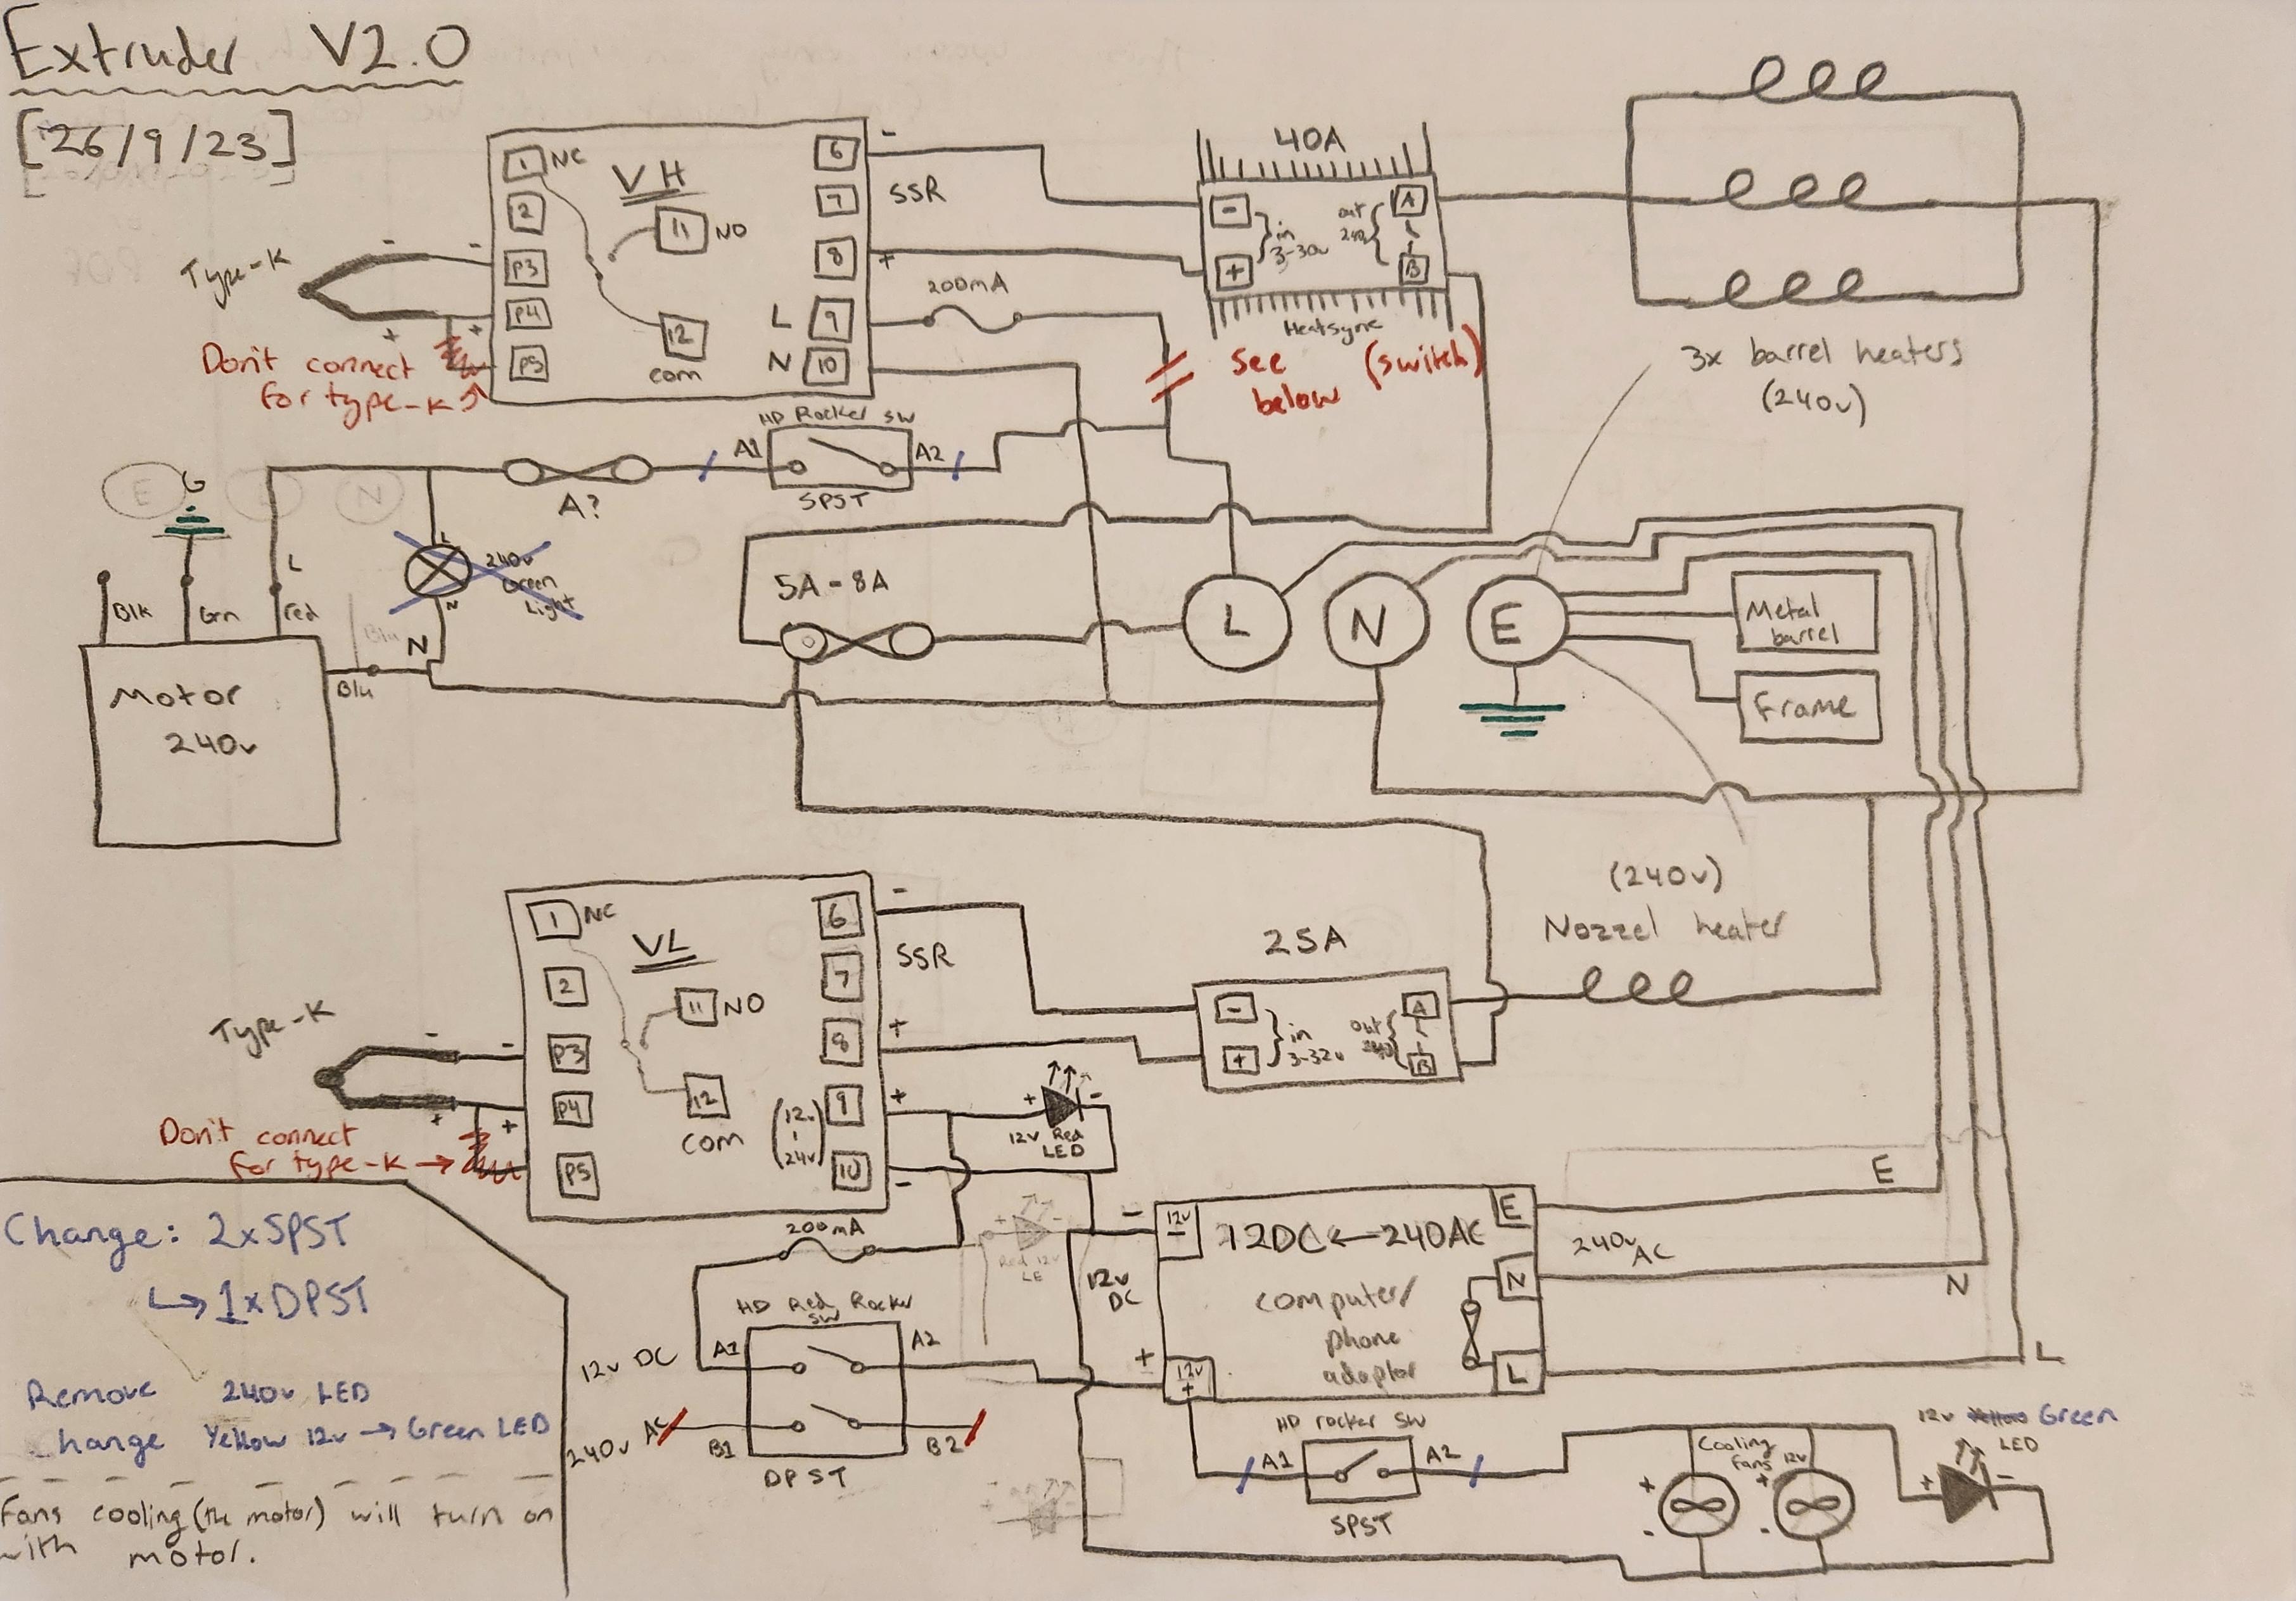 Extruder V2.0
[26/9/23]
1 NC
VH
6 -
SSR
7
2
11 NO
8 +
Type-K
- -
P3
P4
+ +
P5
12
com
L 9
N 10
200mA
Don't connect
for type-K
40A
-
+
in
3-30v
out
240
A
B
Heatsync
See (switch)
below
3x barrel heaters
(240v)
HD Rocker SW
A1
A2
SPST
A?
E
L
N
G
L
Blk
Grn
Red
Blu
N
Blu
L
240v
Green
Light
N
Motor
240v
5A-8A
L
N
E
Metal
barrel
Frame
(240v)
Nozzel heater
1 NC
VL
6 -
SSR
7
2
11 NO
8 +
Type-K
- -
P3
P4
+ +
P5
12
com
9 +
(12v
-
24v)
10 -
Don't connect
for type-K →
25A
-
+
in
3-32v
out
240
A
B
+ -
12v Red
LED
200mA
Red 12v
LE
Change: 2xSPST
↳ 1xDPST
Remove 240v LED
change Yellow 12v → Green LED
Fans cooling (the motor) will turn on
with motor.
HD Red Rocker
SW
12v DC A1
A2
240v AC
B1
B2
DPST
12v
DC
-
12v
-
12DC ← 240AC
computer/
phone
adaptor
+
12v
+
E
N
L
E
240v
AC
N
L
HD rocker SW
A1
A2
SPST
Cooling
fans 12v
+
-
+
-
12v Yellow Green
LED
+ -